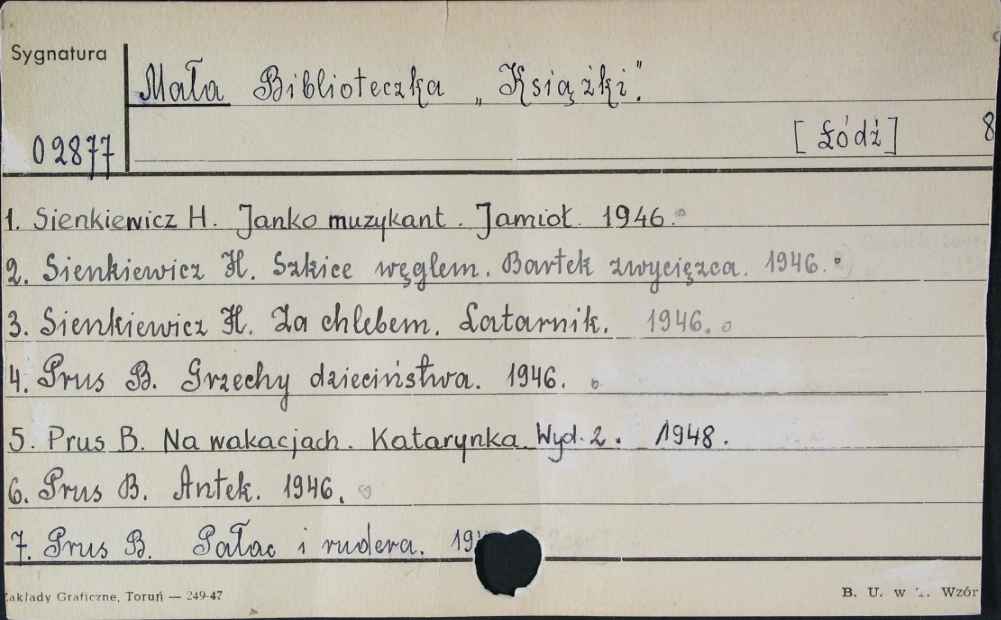 Sygnatura
Mała Biblioteczka „Książki."
[Łódź] 8
02877
1. Sienkiewicz H. Janko muzykant. Jamioł. 1946.
2. Sienkiewicz H. Szkice węglem. Bartek zwycięzca. 1946.
3. Sienkiewicz H. Za chlebem. Latarnik. 1946.
4. Prus B. Grzechy dzieciństwa. 1946.
5. Prus B. Na wakacjach. Katarynka Wyd. 2. 1948.
6. Prus B. Antek. 1946.
7. Prus B. Pałac i rudera. 19
Zakłady Graficzne, Toruń — 249-47
B. U. w Wzór